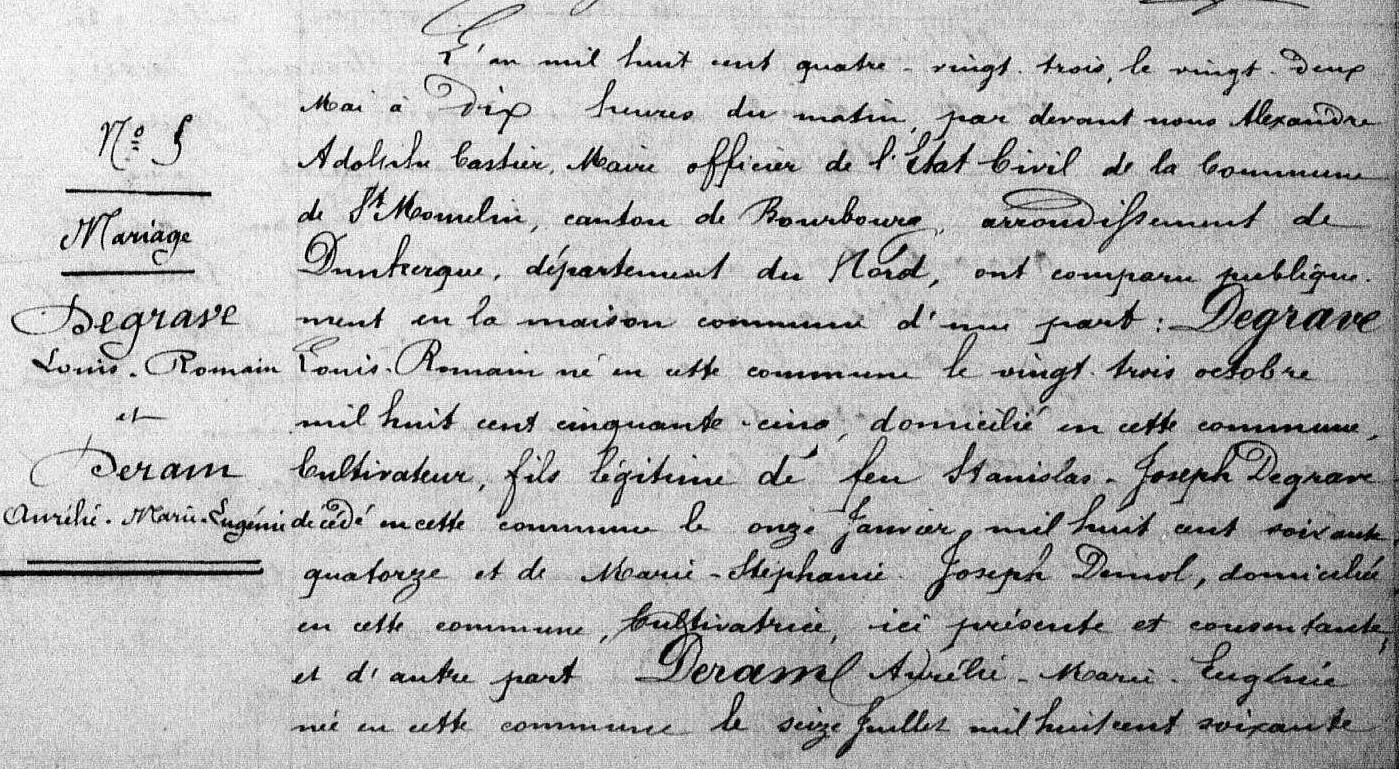 N° 5
Mariage
Degrave
Louis-Romain
et
Deram
Aurélie-Marie-Eugénie
L'an mil huit cent quatre-vingt-trois, le vingt-deux
Mai à Dix heures du matin, par devant nous Alexandre
Adolphe Castier, Maire officier de l'Etat Civil de la Commune
de St Momelin, canton de Bourbourg, arrondissement de
Dunkerque, département du Nord, ont comparu publique-
ment en la maison commune d'une part : Degrave
Louis-Romain né en cette commune le vingt-trois octobre
mil huit cent cinquante-cinq, domicilié en cette commune,
Cultivateur, fils légitime de feu Stanislas-Joseph Degrave
décédé en cette commune le onze Janvier mil huit cent soixante
quatorze et de Marie-Stéphanie-Joseph Demol, domiciliée
en cette commune, Cultivatrice, ici présente et consentante,
et d'autre part Deram Aurélie-Marie-Eugénie
née en cette commune le seize Juillet mil huit cent soixante